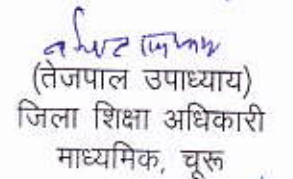 (तेजपाल उपाध्याय)
जिला शिक्षा अधिकारी
माध्यमिक, चूरू